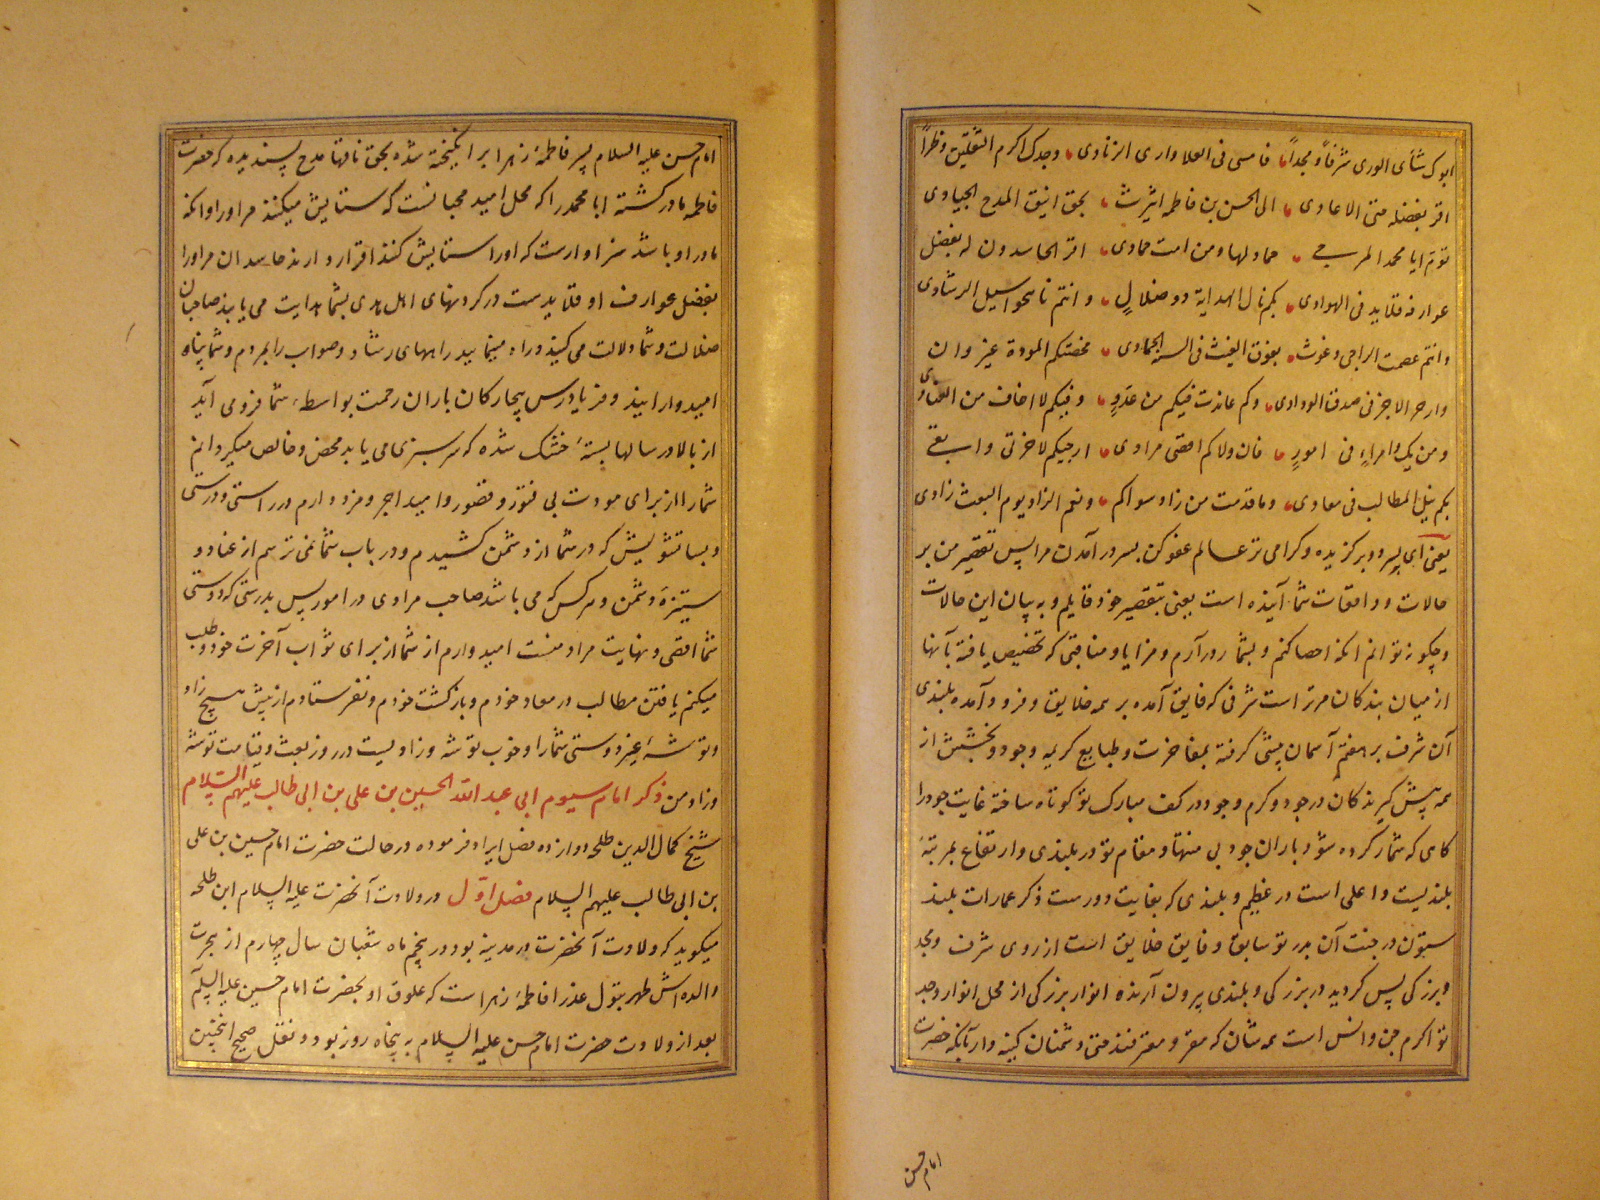 ابوک شأی الوری شرفاً و مجداً فامسی فی العلا واری الزنادی وجدک اکرم الثقلین وطراً
اقر بفضله حتی الاعادی الی الحسن بن فاطمه اثیرت بحق اینق المدح الجیادی
تؤم ابا محمد المرجی حماد لها ومن امت حمادی اقر الحاسدون له بفضل
عوارفه قلاید فی الهوادی بکم نال الهدایة ذو ضلالٍ وانتم ناهجوا سبل الرشادی
وانتم عصمت الراجی وغوث یفوق الغیث فی السنه الجمادی محضتکم المودة غیر وان
وارجو الاجر فی صدق الودادی وکم عاندت فیکم من عدوٍ وفیکم لا اخاف من العنادی
ومن یک ذا مراءٍ فی امورٍ فان ولاکم اقصی مرادی ارجیکم لاخرتی وابغی
بکم نیل المطالب فی معادی وما قدمت من زاد سواکم ونعم الزاد یوم البعث زادی
یعنی ای پسر دو برگزیده و گرامی تر عالم عفو کن بسر در آمدن مرا پس تقصیر من بر
حالات و واقعات شما آینده است یعنی بتقصیر خود قایلم و به پیان این حالات
وچگونه توانم انکه احصا کنم و بشمار در آرم و مزایا و مناقبی که تخصیص یافته بآنها
از میان بندگان مر تراست شرفی که فایق آمده بر همه خلایق و فرود آمده بلندی
آن شرف بر هفتم آسمان پیشی گرفته بمفاخرت و طبایع کریمه وجود و بخشش از
همه پیش گیرندگان در جود و کرم و جود در کف مبارک تو کوتاه ساخته غایت جود را
گاهی که شمار کرده شود باران جود بی منتها و مقام تو در بلندی و ارتفاع بمرتبهٔ
بلندیست و اعلی است در عظیم و بلندی که بغایت دورست ذکر عمارات بلند
ستون در جنت آن پدر تو سابق و فایق خلایق است از روی شرف و مجد
و بزرگی پس گردید در بزرگی و بلندی پیرون آرنده انوار بزرگی از محل انوار وجد
تو اکرم جن و انس است همه شان که مقر و معترفند حتی دشمنان کینه دار تا بآنکه حضرت
امام حسن
امام حسن علیه السلام پسر فاطمهٔ زهرا برانکیخته شده بحق ناقها مدح پسندیده که حضرت
فاطمه مادر کشته ابا محمد را که محل امید محبانست که ستایش میکنند مر او را و انکه
مادر او باشد سزاوارست که او را ستایش کنند اقرار دارند حاسدان مر او را
بفضل عوارف او قلایدست در گردنهای اهل هدی بشما هدایت می یابند صاحبان
ضلالت و شما دلالت می کنید و راه مینمایید راههای رشاد و صواب را بمردم و شما پناه
امیدوارانید و فریادرس پیچارگان باران رحمت بواسطهٔ شما فرو می آید
از بالا در سالها بستهٔ خشک شده که سرسبزی می یابد محض و خالص میکردانم
شما را از برای مودت بی فتور و قصور و امید اجر و مزد دارم در راستی و درستی
و بسا تشویش که در شما از دشمن کشیدم و در باب شما نمی ترسم از عناد و
ستیزهٔ دشمن و هر کس که می باشد صاحب مرادی در امور پس بدرستی که دوستی
شما اقصی و نهایت مراد منست امیدوارم از شما از برای ثواب آخرت خود و طلب
میکنم یافتن مطالب در معاد خودم و بازگشت خودم و نفرستادم از پیش هیچ زاد
و توشهٔ غیر دوستی شما را و خوب توشه و زادیست در روز بعث و قیامت توشه
وزاد من ذکر امام سیوم ابی عبدالله الحسین بن علی بن ابی طالب علیهم السلام
شیخ کمال الدین طلحه دوازده فصل ایراد فرموده در حالت حضرت امام حسین بن علی
بن ابی طالب علیهم السلام فصل اوّل در ولادت آنحضرت علیه السلام ابن طلحه
میکوید که ولادت آنحضرت در مدینه بود در پنجم ماه شعبان سال چهارم از هجرت
والده اش طهر بتول عذرا فاطمهٔ زهراست که علوق او بحضرت امام حسین علیه السلام
بعد از ولادت حضرت امام حسن علیه السلام به پنجاه روز بود و نقل صحیح اینچنین